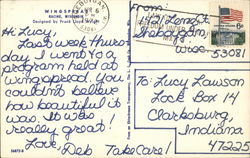 WINGSPREAD
RACINE, WISCONSIN
Designed by Frank Lloyd Wright
Hi Lucy,
Last week thurs-
day I went to a
program held at
wingspread. You
couldn't believe
how beautiful it
was. It was
really great!
Love,
Deb Take Care!
From:
1421 Long Ct.
Sheboygan,
Wisc.
53081
To: Lucy Lawson
Lock Box 14
Clarksburg,
Indiana
47225